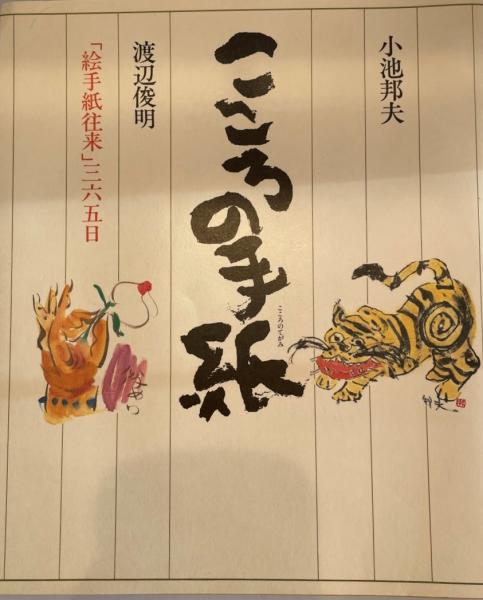 小池邦夫
こころの手紙
こころのてがみ
渡辺俊明
「絵手紙往来」三六五日